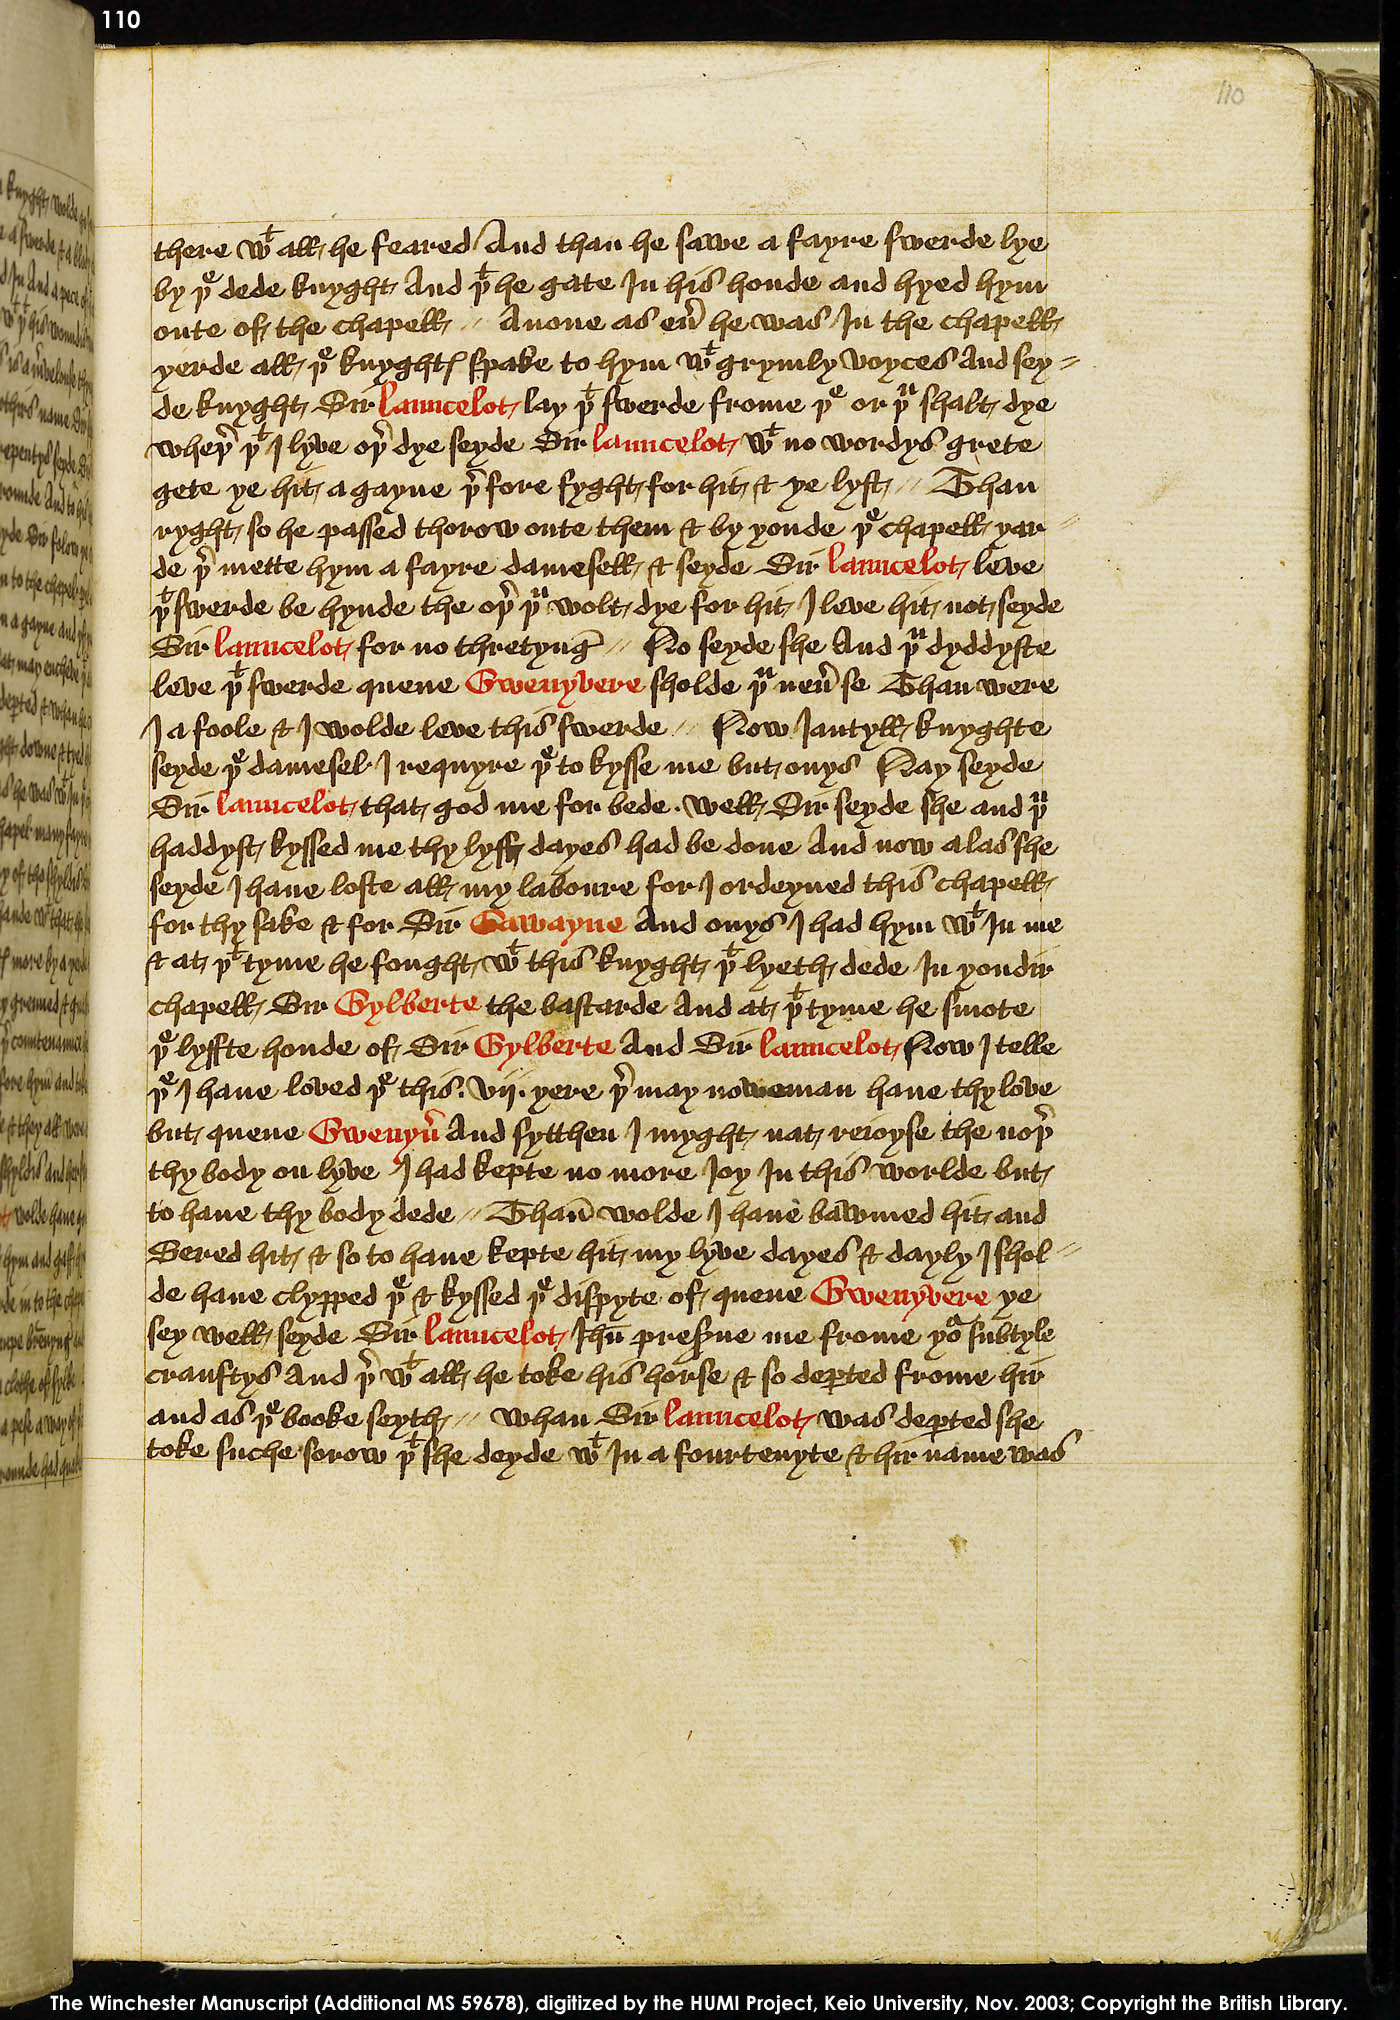 110
110
there wᵗ all he feared And than he sawe a fayre swerde lye
by þᵉ dede knyght And þᵗ he gate In his honde and hyed hym
oute of the chapell // Anone as eu̾ he was In the chapell
yerde all þᵉ knyghtꝭ spake to hym wᵗ grymly voyces And sey //
de knyght Sir launcelot lay þᵗ swerde frome þᵉ or þᵘ shalt dye
wheþ̾ þᵗ I lyve oþ̾ dye seyde Sir launcelot wᵗ no wordys grete
gete ye hit a gayne þ̾fore fyght for hit & ye lyst // Than
ryght so he passed thorow oute them & by yonde þᵉ chapell yar //
de þ̾ mette hym a fayre damesell & seyde Sir launcelot leve
þᵗ swerde be hynde the oþ̾ þᵘ wolt dye for hit I leve hit not seyde
Sir launcelot for no thretyng̾ // No seyde she And þᵘ dyddyste
leve þᵗ swerde quene Gwenyvere sholde þᵘ neu̾ se Than were
I a foole & I wolde leve this swerde // Now Jantyll knyghte
seyde þᵉ damesel I requyre þᵉ to kysse me but onys Nay seyde
Sir launcelot that god me for bede · well Sir seyde she and þᵘ
haddyst kyssed me thy lyff dayes had be done And now alas she
seyde I haue loste all my laboure for I ordeyned this chapell
for thy sake & for Sir Gawayne And onys I had hym wᵗ In me
& at þᵗ tyme he fought wᵗ this knyght þᵗ lyeth dede In yondir
chapell Sir Gylberte the bastarde And at þᵗ tyme he smote
þᵉ lyffte honde of Sir Gylberte And Sir launcelot Now I telle
þᵉ I haue loved þᵉ this · vij · yere þ̾ may no weman haue thy love
but quene Gwenyu̾ And sytthen I myght nat reioyse the noþ̾
thy body on lyve I had kepte no more Ioy In this worlde but
to haue thy body dede // Thañ wolde I haue bawmed hit and
Sered hit & so to haue kepte hit my lyve dayes & dayly I shol //
de haue clypped þᵉ & kyssed þᵉ dispyte of quene Gwenyvere ye
sey well seyde Sir launcelot Ihū pres̾ue me frome yoʳ subtyle
crauftys And þ̾ wᵗ all he toke his horse & so deꝑted frome hir
and as þᵉ booke seyth // whan Sir launcelot was deꝑted she
toke suche sorow þᵗ she deyde wᵗ In a fourtenyte & hir name was
The Winchester Manuscript (Additional MS 59678), digitized by the HUMI Project, Keio University, Nov. 2003; Copyright the British Library.